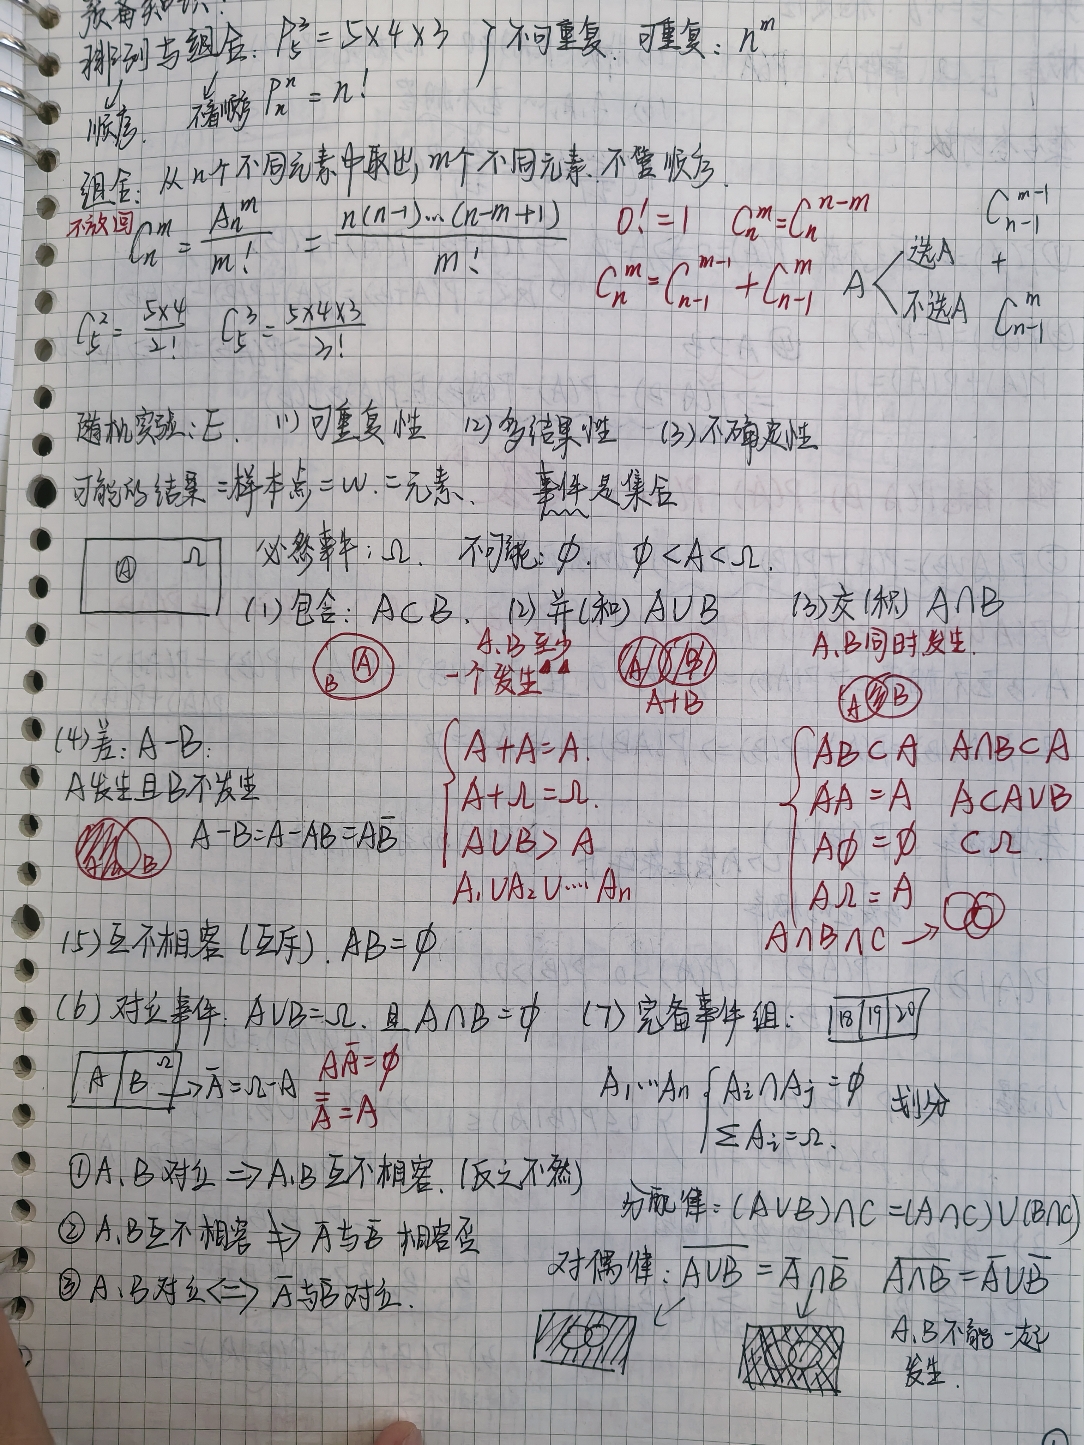 预备知识：
排列与组合：P₅³ = 5×4×3 } 不可重复. 可重复：nᵐ
顺序. 不看顺序 Pₙⁿ = n!
组合：从n个不同元素中取出m个不同元素. 不管顺序.
不放回 Cₙᵐ = Aₙᵐ/m! = n(n-1)…(n-m+1)/m! 0! = 1 Cₙᵐ = Cₙⁿ⁻ᵐ
Cₙᵐ = Cₙ₋₁ᵐ⁻¹ + Cₙ₋₁ᵐ A < 选A 不选A Cₙ₋₁ᵐ⁻¹ + Cₙ₋₁ᵐ
C₅² = 5×4/2! C₅³ = 5×4×3/3!
随机实验：E. (1)可重复性 (2)多结果性 (3)不确定性
可能的结果 = 样本点 = w. = 元素. 事件是集合
A Ω 必然事件：Ω. 不可能：φ. φ < A < Ω.
(1)包含：A⊂B. (2)并(和) A∪B (3)交(积) A∩B
B A A.B至少一个发生 A B A+B A.B同时发生. A B
(4)差：A-B：
A发生且B不发生
A B A-B=A-AB=AB̅
A+A=A.
A+Ω=Ω.
A∪B>A
A₁∪A₂∪…Aₙ
AB⊂A A∩B⊂A
AA=A A⊂A∪B
Aφ=φ ⊂Ω.
AΩ=A
A∩B∩C →
(5)互不相容(互斥). AB=φ
(6)对立事件：A∪B=Ω. 且A∩B=φ (7)完备事件组： 18 19 20
A B Ω → A̅=Ω-A AA̅=φ
A̿=A
A₁…Aₙ { Aᵢ∩Aⱼ=φ 划分
ΣAᵢ=Ω.
①A.B对立 ⇒ A.B互不相容. (反之不然)
②A.B互不相容 ⇏ A̅与B̅ 相容否
③A.B对立 ⟺ A̅与B̅对立.
分配律：(A∪B)∩C=(A∩C)∪(B∩C)
对偶律：A∪B̅ = A̅∩B̅ A∩B̅ = A̅∪B̅
A.B不能一起
发生.